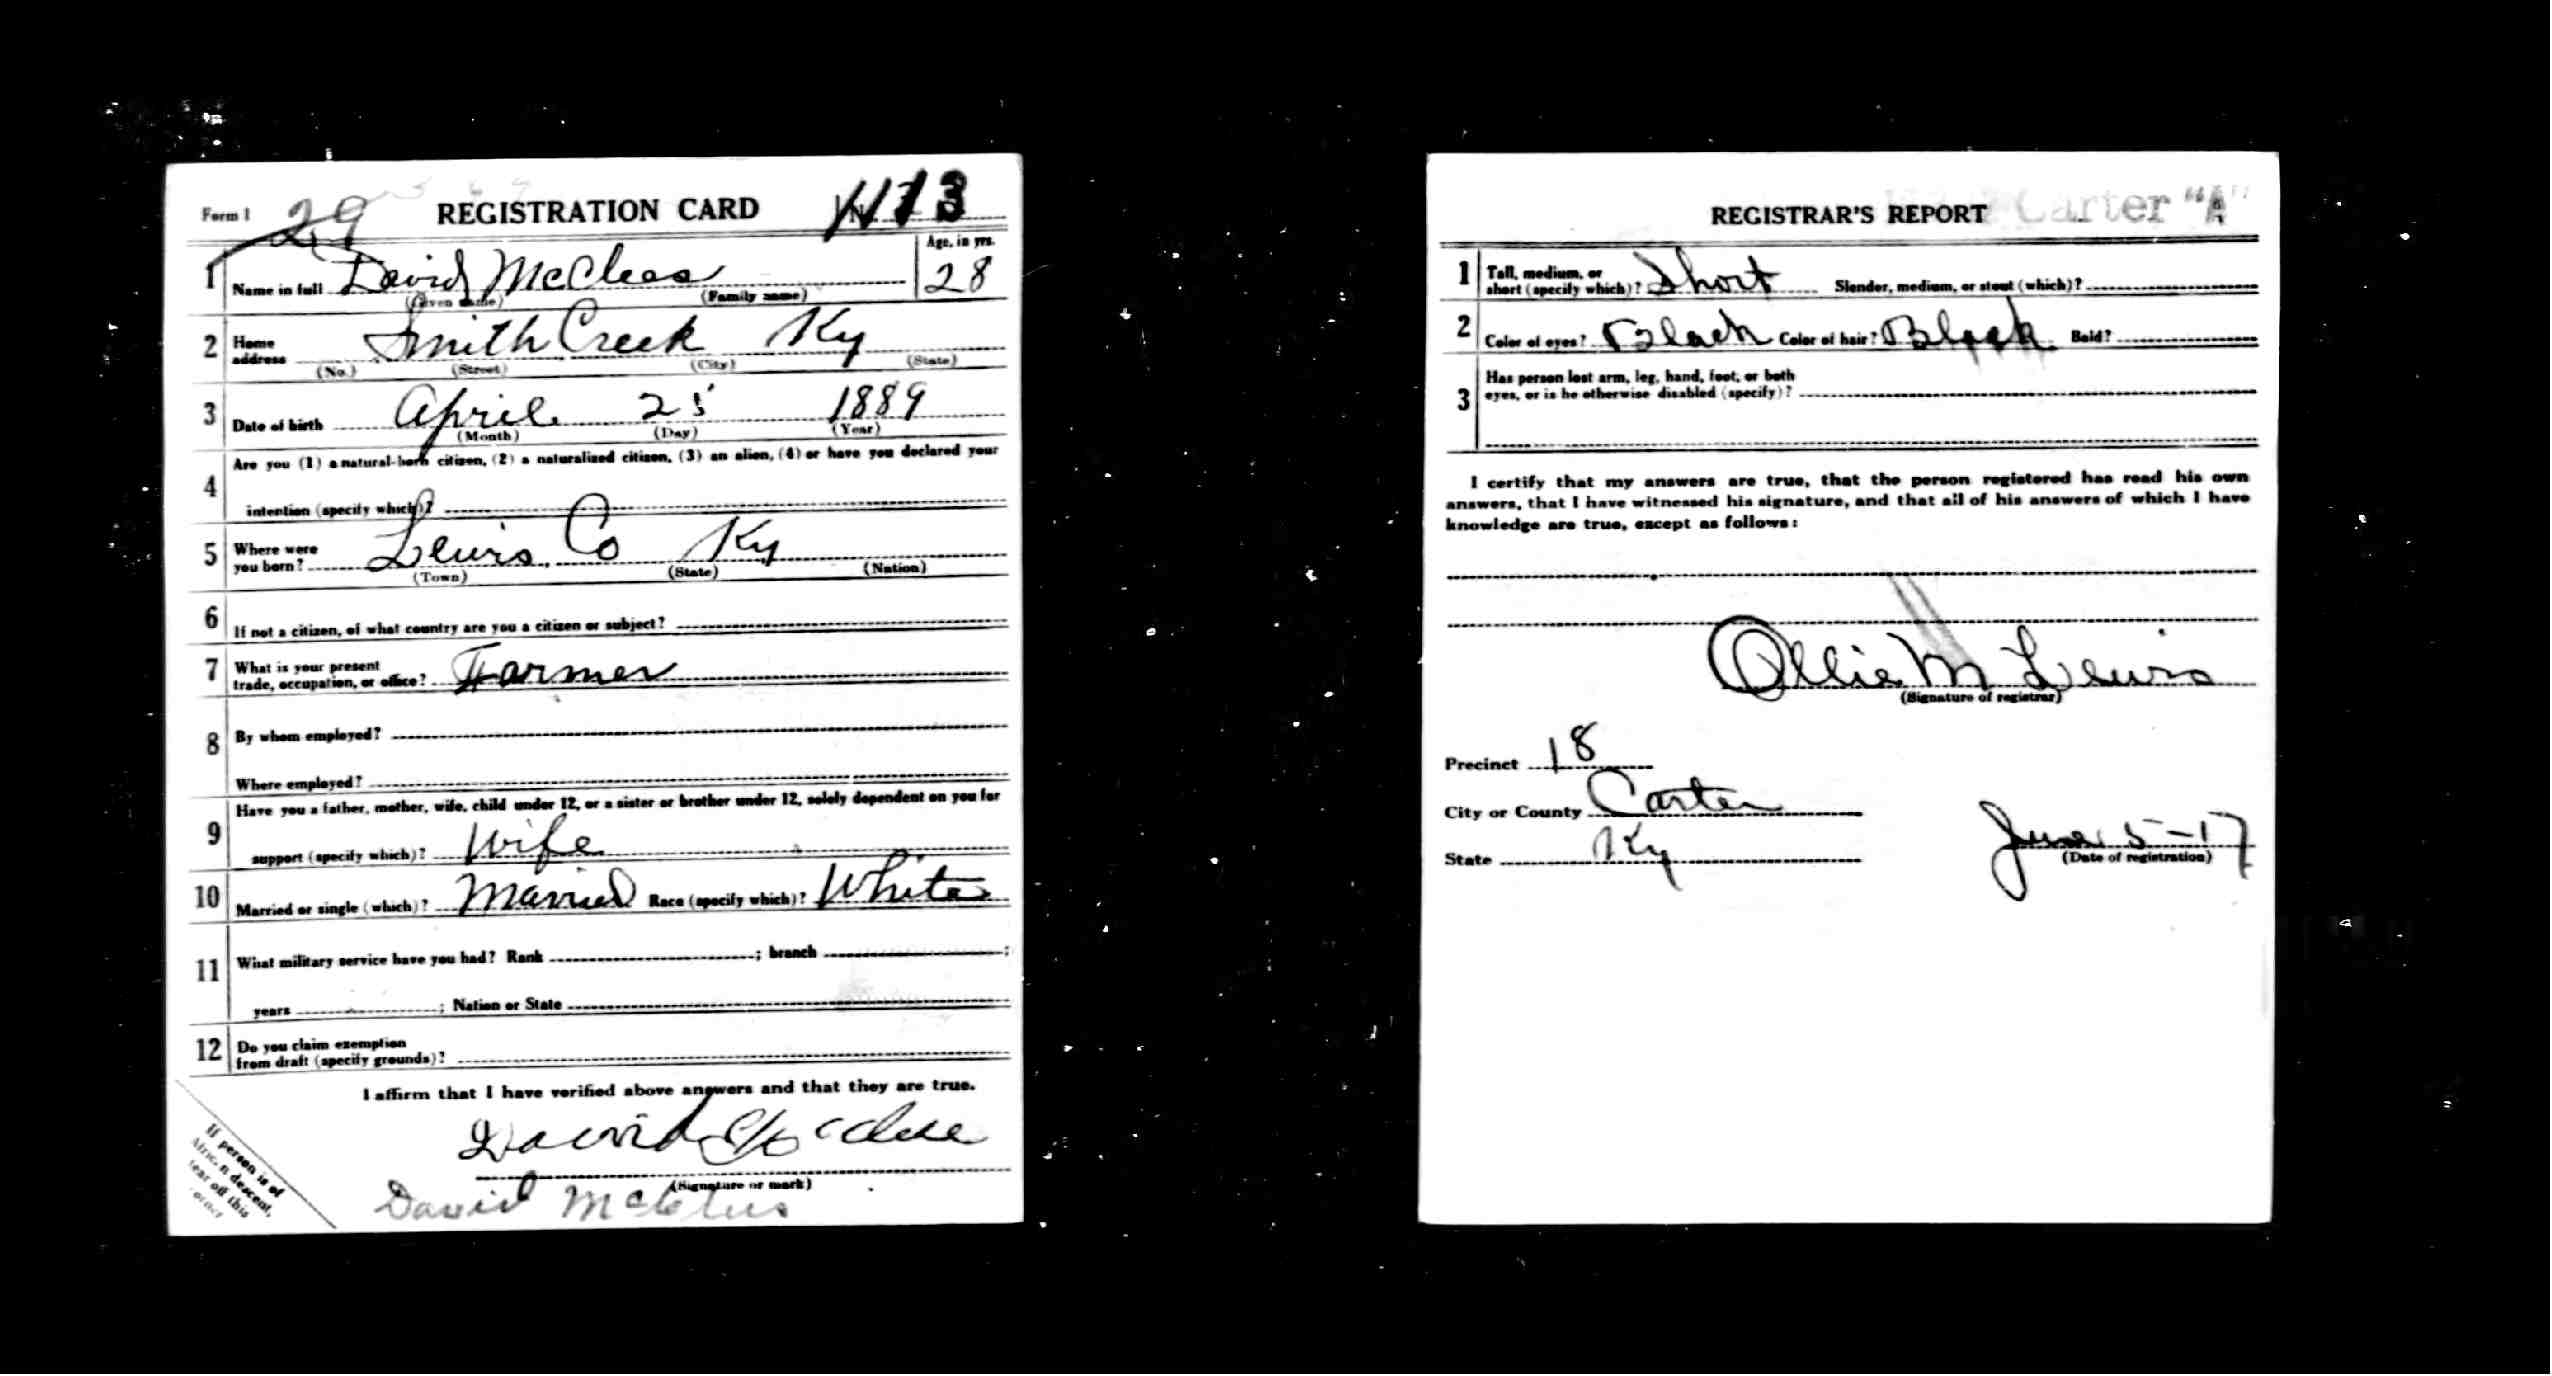 Form 1 29 REGISTRATION CARD
1 Name in full David McClees Age, in yrs. 28
(Given name) (Family name)
2 Home address Smith Creek Ky
(No.) (Street) (City) (State)
3 Date of birth April 25 1889
(Month) (Day) (Year)
4 Are you (1) a natural-born citizen, (2) a naturalized citizen, (3) an alien, (4) or have you declared your
intention (specify which)?
5 Where were you born? Lewis Co Ky
(Town) (State) (Nation)
6 If not a citizen, of what country are you a citizen or subject?
7 What is your present trade, occupation, or office? Farmer
8 By whom employed?
Where employed?
9 Have you a father, mother, wife, child under 12, or a sister or brother under 12, solely dependent on you for
support (specify which)? Wife
10 Married or single (which)? Married Race (specify which)? White
11 What military service have you had? Rank ; branch ;
years ; Nation or State
12 Do you claim exemption from draft (specify grounds)?
I affirm that I have verified above answers and that they are true.
David
(Signature or mark)
David
If person is of
African descent,
tear off this
corner
REGISTRAR'S REPORT Carter "A"
1 Tall, medium, or short (specify which)? Short Slender, medium, or stout (which)?
2 Color of eyes? Black Color of hair? Black Bald?
3 Has person lost arm, leg, hand, foot, or both
eyes, or is he otherwise disabled (specify)?
I certify that my answers are true, that the person registered has read his own
answers, that I have witnessed his signature, and that all of his answers of which I have
knowledge are true, except as follows:
Ollie M Lewis
(Signature of registrar)
Precinct 18
City or County Carter
State Ky June 5-17
(Date of registration)